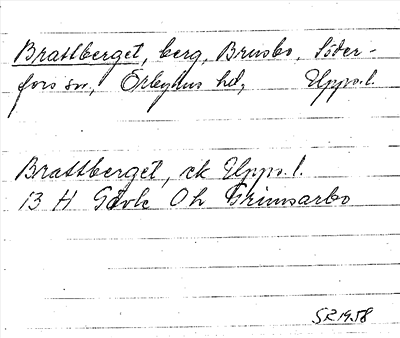 Brattberget, berg, Brusbo, Söder-
fors sn, Örbyhus hd, Upps. l.
Brattberget, ek Upps. l.
13 H Gävle Oh Grimsarbo
SR 1958